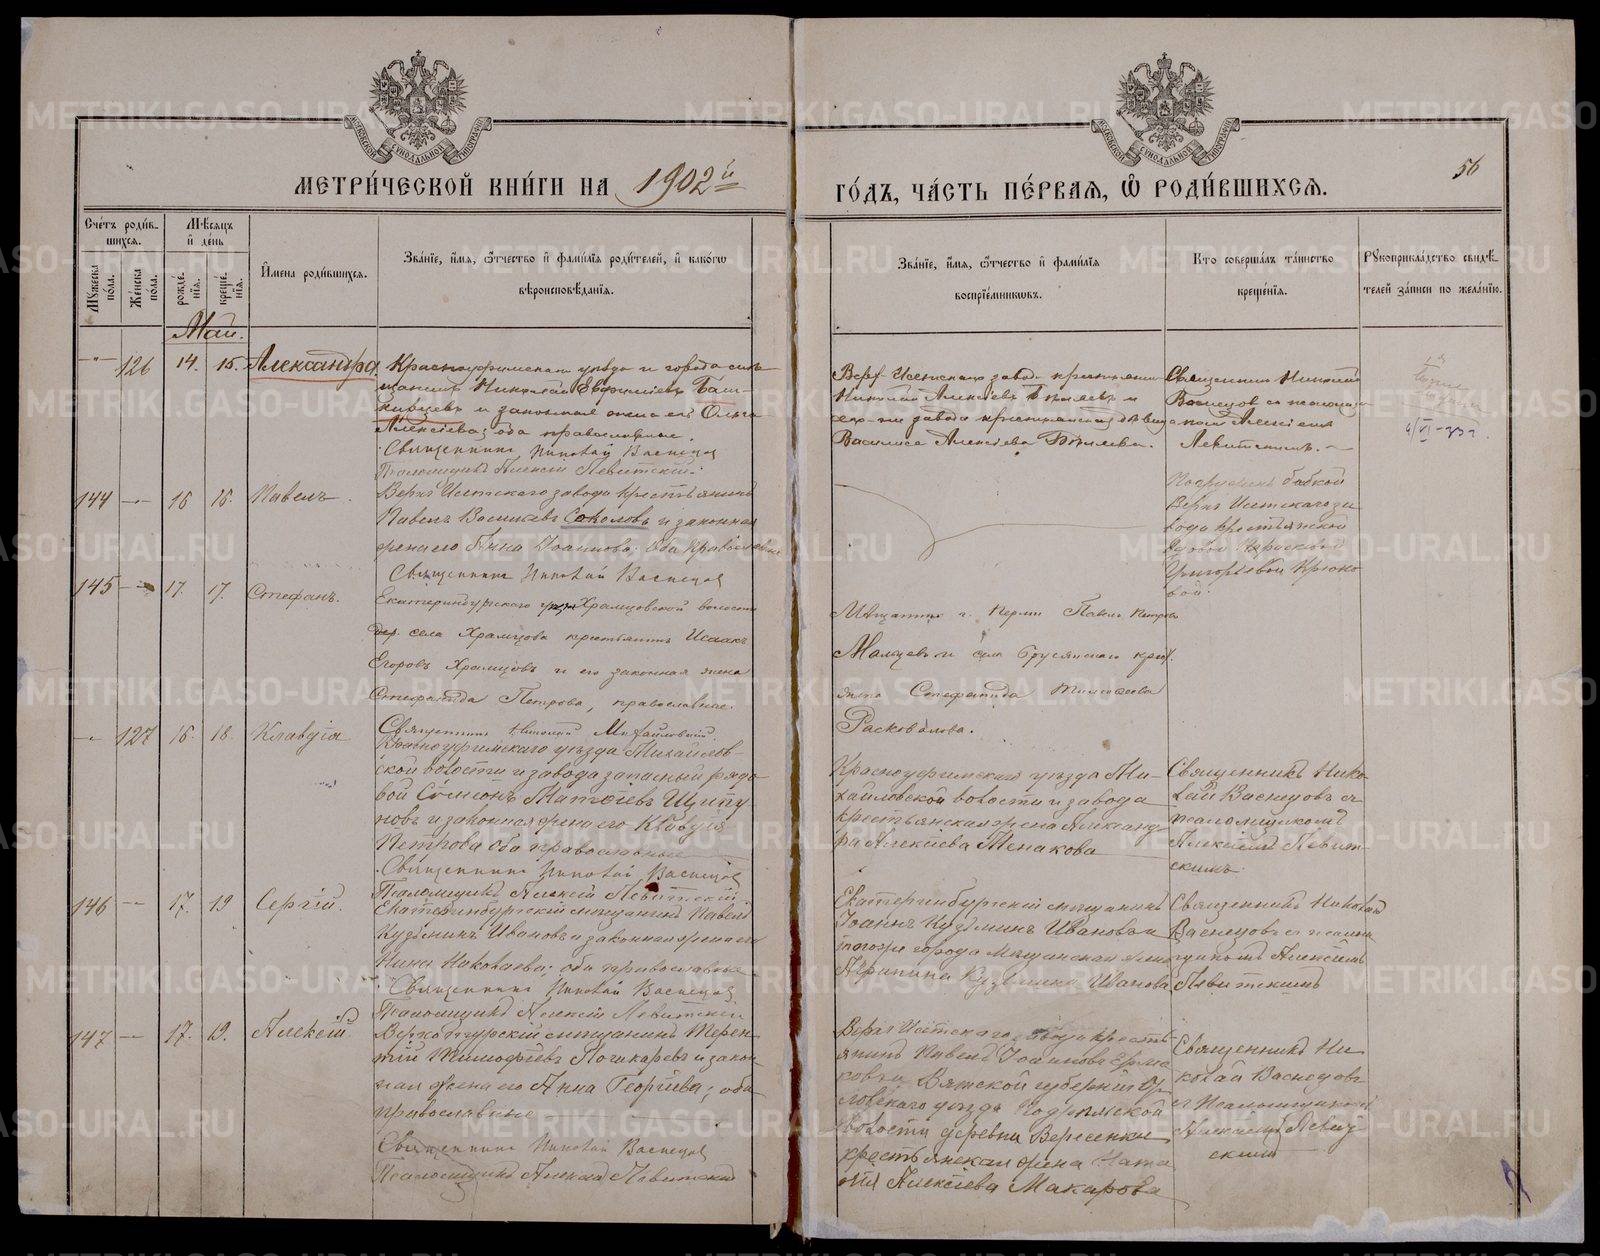 МЕТРИ́ЧЕСКОЙ КНИ́ГИ НА 1902й
ГО́ДЪ, ЧА́СТЬ ПЕ́РВАЯ, Ѿ РОДИ́ВШИХСѦ.
56
Сче́тъ роди́вшихся.
Мѣ́сяцъ и́ де́нь
И҆мена̀ роди́вшихся.
Зва́нїе, и́мя, ѻ҆́тчество и҆ фами́лїя роди́телей, и҆ како́гѡ
вѣроисповѣ́данїя.
Му́жеска по́ла.
Же́нска по́ла.
рожде́нїя.
креще́нїя.
Зва́нїе, и́мя, ѻ҆́тчество и҆ фами́лїя
воспрїе́мникѡвъ.
Кто̀ соверша́лъ та́инство
креще́нїя.
Рꙋкоприкла́дство свидѣ́телей за́писи по жела́нїю.
Май.
126 14. 15. Александра
Красноуфимскаго уѣзда и города мѣщанинъ Николай Евфиміевъ Башкирцевъ и законная жена его Ольга
Алексѣева; оба православные.
Священникъ Николай Васнецов
Псаломщикъ Алексій Левитскій.
Верх-Исетскаго завод. крестьянинъ
Николай Алексѣевъ Бѣляевъ и
того-же завода крестьянская дѣвица
Василиса Алексѣева Бѣляева.
Священникъ Николай
Васнецов съ псаломщикомъ Алексіемъ
Левитскимъ.
144 15 15. Павелъ.
Верхъ Исетскаго завода крестьянинъ
Павелъ Васильевъ Соколовъ и законная
жена его Анна Іоаннова; оба православные
Священникъ Николай Васнецов
Погруженъ бабкой
Верхъ Исетскаго завода крестьянской
вдовой Параскевой
Григорьевой Крюковой.
145 17. 17. Стефанъ.
Екатеринбургскаго уѣзда Храмцовской волости
села Храмцова крестьянинъ Исаакъ
Егоровъ Храмцовъ и его законная жена
Стефанида Петрова, православные.
Священникъ Николай Михайловскій.
Мѣщанинъ г. Перми Павелъ Петровъ
Мальцевъ и села Брусянскаго крест.
жена Стефанида Тимофеева
Расковалова.
127 16 18. Клавдія
Красноуфимскаго уѣзда Михайловской волости и завода запасный рядовой Симеонъ Матѳіевъ Щипуновъ и законная жена его Клавдія
Петрова оба православные
Священникъ Николай Васнецов
Псаломщикъ Алексій Левитскій.
Красноуфимскаго уѣзда Михайловской волости и завода
крестьянская жена Александра Алексіева Менакова
Священникъ Николай Васнецовъ съ
псаломщикомъ
Алексіемъ Левитскимъ.
146 17. 19 Сергій.
Екатеринбургскій мѣщанинъ Павелъ
Кузьминъ Ивановъ и законная жена его
Нина Николаева; оба православные
Священникъ Николай Васнецов
Псаломщикъ Алексій Левитскій
Екатеринбургскій мѣщанинъ
Іоаннъ Кузьминъ Ивановъ и
того же города мѣщанская жена
Агрипина Кузьмина Иванова
Священникъ Николай
Васнецовъ съ псаломщикомъ Алексіемъ
Левитскимъ
147 17. 19. Алексій
Верхотурскій мѣщанинъ Терентій Тимофіевъ Погикаревъ и законная жена его Анна Георгіева; оба
православные
Священникъ Николай Васнецов
Псаломщикъ Алексій Левитскій
Верхъ Исетскаго завода крестьянинъ Павелъ Іоанновъ Ермаковъ и Вятской губерніи Орловскаго уѣзда
волости деревни Вересенки
крестьянская жена Наталія Алексіева Макарова
Священникъ Николай Васнецовъ
съ Псаломщикомъ
Алексіемъ Левитскимъ